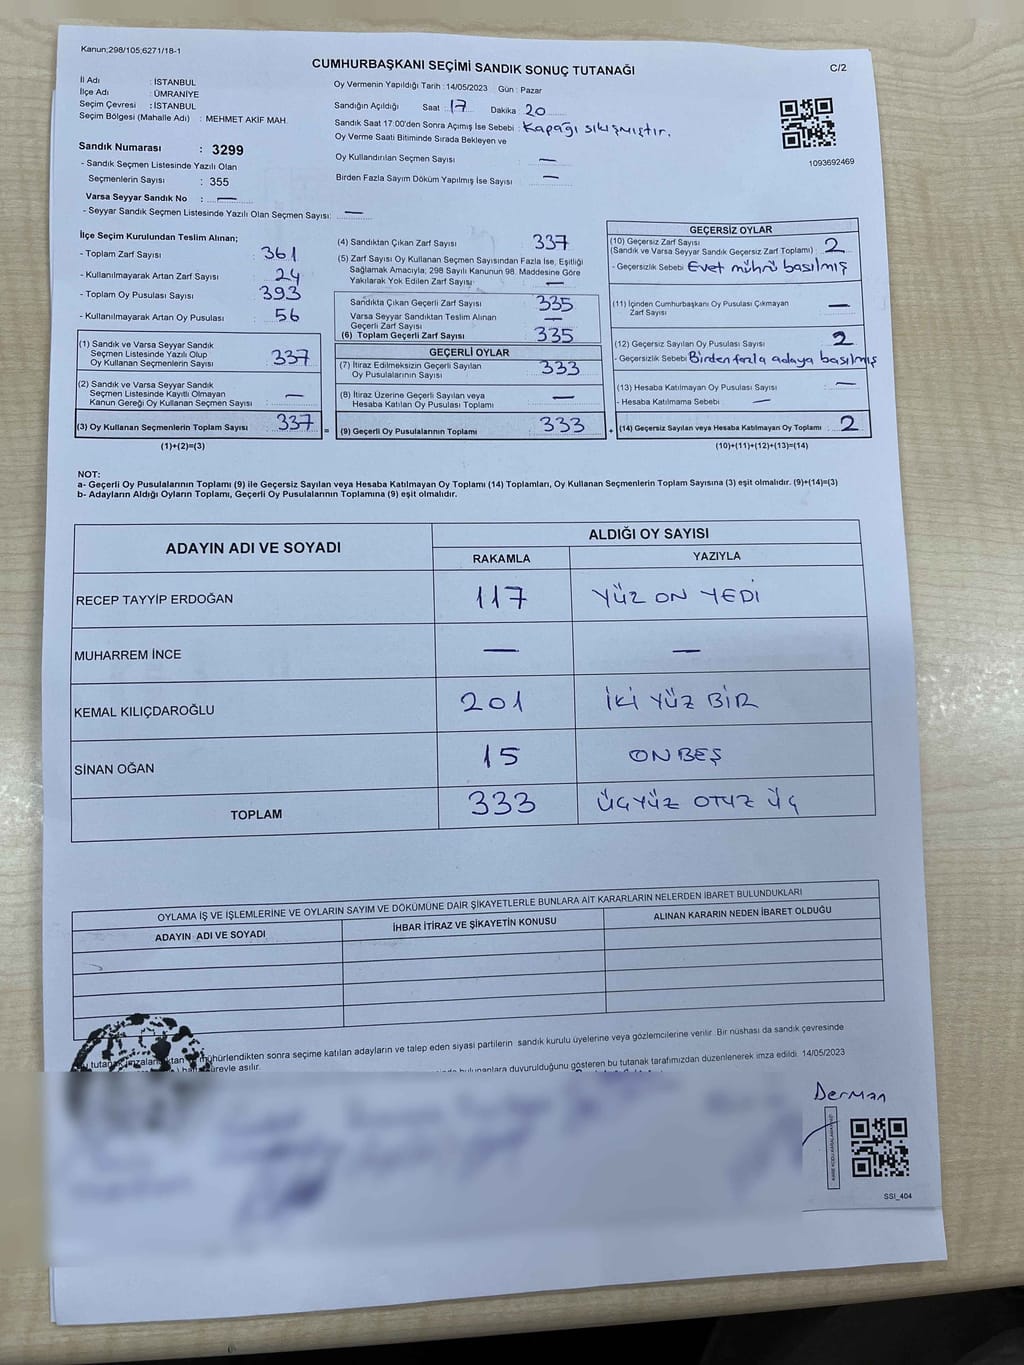 Kanun;298/105,6271/18-1
CUMHURBAŞKANI SEÇİMİ SANDIK SONUÇ TUTANAĞI
C/2
İl Adı : İSTANBUL
İlçe Adı : ÜMRANİYE
Seçim Çevresi : İSTANBUL
Seçim Bölgesi (Mahalle Adı) : MEHMET AKİF MAH.
Oy Vermenin Yapıldığı Tarih : 14/05/2023 Gün : Pazar
Sandığın Açıldığı Saat 17 Dakika : 20
Sandık Saat 17:00'den Sonra Açımış İse Sebebi : Kapağı sıkışmıştır.
Oy Verme Saati Bitiminde Sırada Bekleyen ve
Oy Kullandırılan Seçmen Sayısı : —
Birden Fazla Sayım Döküm Yapılmış İse Sayısı : —
1093692469
Sandık Numarası : 3299
- Sandık Seçmen Listesinde Yazılı Olan
Seçmenlerin Sayısı : 355
Varsa Seyyar Sandık No : —
- Seyyar Sandık Seçmen Listesinde Yazılı Olan Seçmen Sayısı: —
İlçe Seçim Kurulundan Teslim Alınan;
- Toplam Zarf Sayısı : 361
- Kullanılmayarak Artan Zarf Sayısı : 24
- Toplam Oy Pusulası Sayısı : 393
- Kullanılmayarak Artan Oy Pusulası : 56
(1) Sandık ve Varsa Seyyar Sandık
Seçmen Listesinde Yazılı Olup
Oy Kullanan Seçmenlerin Sayısı : 337
(2) Sandık ve Varsa Seyyar Sandık
Seçmen Listesinde Kayıtlı Olmayan
Kanun Gereği Oy Kullanan Seçmen Sayısı : —
(3) Oy Kullanan Seçmenlerin Toplam Sayısı : 337 =
(1)+(2)=(3)
(4) Sandıktan Çıkan Zarf Sayısı : 337
(5) Zarf Sayısı Oy Kullanan Seçmen Sayısından Fazla İse, Eşitliği
Sağlamak Amacıyla; 298 Sayılı Kanunun 98. Maddesine Göre
Yakılarak Yok Edilen Zarf Sayısı : —
Sandıkta Çıkan Geçerli Zarf Sayısı : 335
Varsa Seyyar Sandıktan Teslim Alınan
Geçerli Zarf Sayısı : —
(6) Toplam Geçerli Zarf Sayısı : 335
GEÇERLİ OYLAR
(7) İtiraz Edilmeksizin Geçerli Sayılan
Oy Pusulalarının Sayısı : 333
(8) İtiraz Üzerine Geçerli Sayılan veya
Hesaba Katılan Oy Pusulası Toplamı : —
(9) Geçerli Oy Pusulalarının Toplamı : 333 +
GEÇERSİZ OYLAR
(10) Geçersiz Zarf Sayısı
(Sandık ve Varsa Seyyar Sandık Geçersiz Zarf Toplamı) : 2
- Geçersizlik Sebebi : Evet mührü basılmış
(11) İçinden Cumhurbaşkanı Oy Pusulası Çıkmayan
Zarf Sayısı : —
(12) Geçersiz Sayılan Oy Pusulası Sayısı : 2
- Geçersizlik Sebebi : Birden fazla adaya basılmış
(13) Hesaba Katılmayan Oy Pusulası Sayısı : —
- Hesaba Katılmama Sebebi : —
(14) Geçersiz Sayılan veya Hesaba Katılmayan Oy Toplamı : 2
(10)+(11)+(12)+(13)=(14)
NOT:
a- Geçerli Oy Pusulalarının Toplamı (9) ile Geçersiz Sayılan veya Hesaba Katılmayan Oy Toplamı (14) Toplamları, Oy Kullanan Seçmenlerin Toplam Sayısına (3) eşit olmalıdır. (9)+(14)=(3)
b- Adayların Aldığı Oyların Toplamı, Geçerli Oy Pusulalarının Toplamına (9) eşit olmalıdır.
ADAYIN ADI VE SOYADI
ALDIĞI OY SAYISI
RAKAMLA YAZIYLA
RECEP TAYYİP ERDOĞAN 117 YÜZ ON YEDİ
MUHARREM İNCE — —
KEMAL KILIÇDAROĞLU 201 İKİ YÜZ BİR
SİNAN OĞAN 15 ONBEŞ
TOPLAM 333 ÜÇYÜZ OTUZ ÜÇ
OYLAMA İŞ VE İŞLEMLERİNE VE OYLARIN SAYIM VE DÖKÜMÜNE DAİR ŞİKAYETLERLE BUNLARA AİT KARARLARIN NELERDEN İBARET BULUNDUKLARI
ADAYIN ADI VE SOYADI İHBAR İTİRAZ VE ŞİKAYETİN KONUSU ALINAN KARARIN NEDEN İBARET OLDUĞU
mühürlendikten sonra seçime katılan adayların ve talep eden siyasi partilerin sandık kurulu üyelerine veya gözlemcilerine verilir. Bir nüshası da sandık çevresinde
süreyle asılır.
duyurulduğunu gösteren bu tutanak tarafımızdan düzenlenerek imza edildi. 14/05/2023
Derman
SSI_404